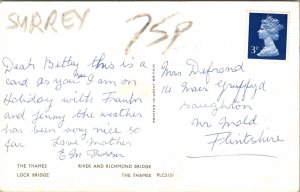 SURREY
75P
Dear Betty this is a
card as you I am on
Holiday with Franln
and Jenny the weather
has been very nice so
far Love Mother
E M Fraser
Mrs Defrond
14 Maes Gruffyd
Gaughton
Nr Mold
Flintshire
3P
THE THAMES
LOCK BRIDGE
RIVER AND RICHMOND BRIDGE
THE THAMES PLC5151